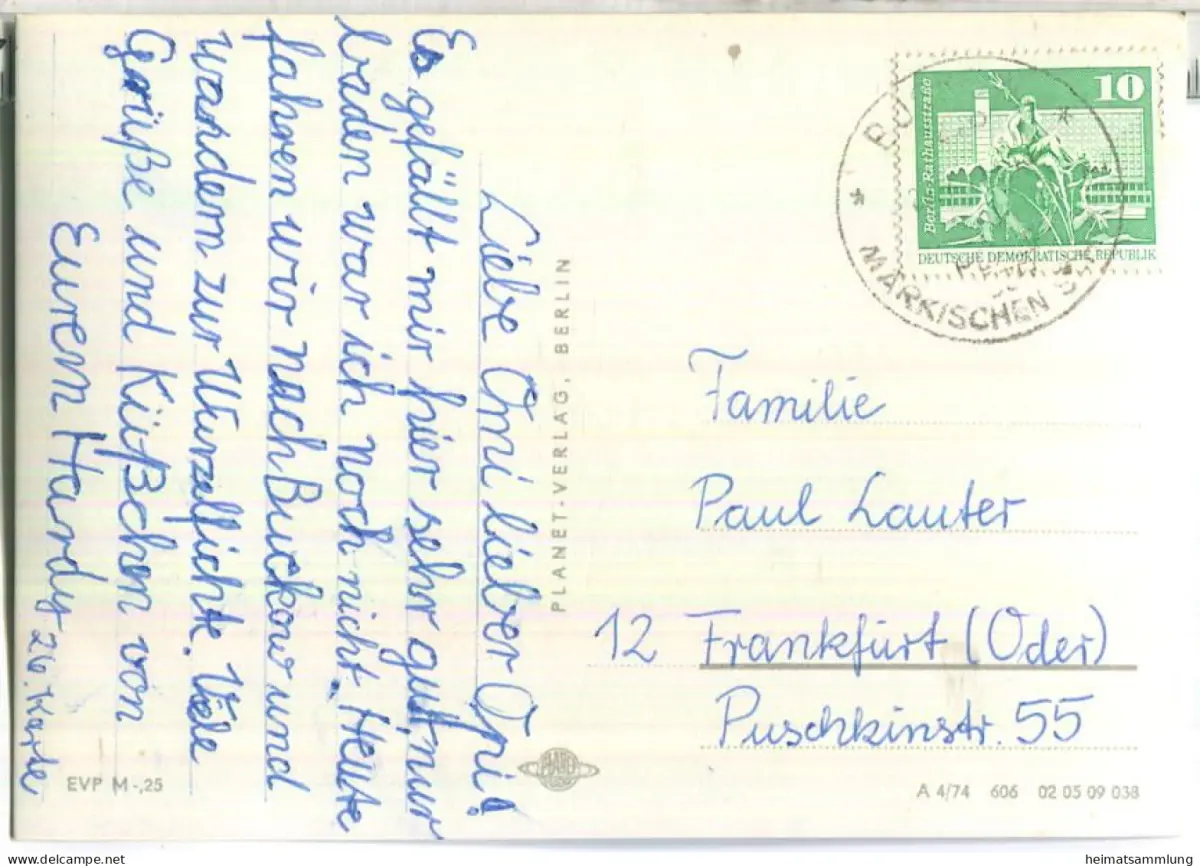 Liebe Omi lieber Opi!
Es gefällt mir hier sehr gut, nur
baden war ich noch nicht. Heute
fahren wir nach Buckow und
wandern zur Wurzelfichte. Viele
Grüße und Küßchen von
Eurem Hardy
26. Karte
EVP M -,25
PLANET-VERLAG, BERLIN
10
Berlin-Rathausstraße
DEUTSCHE DEMOKRATISCHE REPUBLIK
MÄRKISCHEN
Familie
Paul Lauter
12 Frankfurt (Oder)
Puschkinstr. 55
A 4/74 606 02 05 09 038
heimatsammlung.de